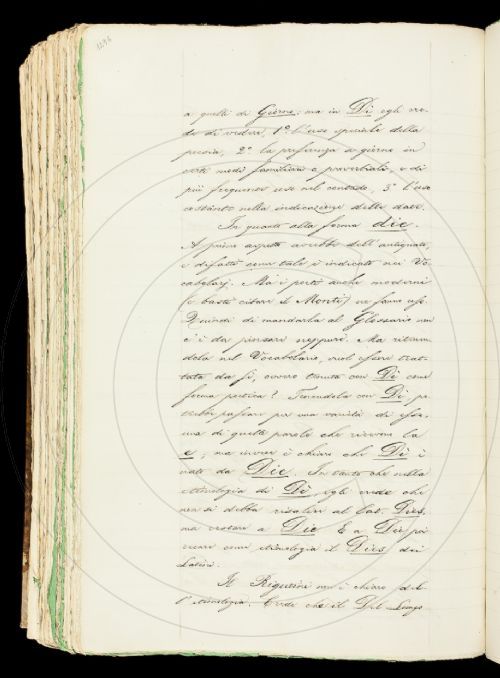 1294
a quelli di Giorno: ma in Dì egli cre-
de di vedere, 1.º l'uso speciale della
poesia, 2.º la preferenza a giorno in
certi modi familiari e proverbiali, e di
più frequente uso nel contado, 3.º l'uso
costante nella indicazione delle date.
In quanto alla forma die.
A prima aspetto avrebbe dell'antiquato,
e difatto come tale è indicato nei Vo-
cabolarj. Ma i poeti anche moderni
(e basta citare il Monti) ne fanno uso.
Quindi di mandarla al Glossario non
c'è da pensare neppure. Ma ritenen-
dola nel Vocabolario, vuol essere trat-
tata da sè, ovvero tenuta con Dì come
forma poetica? Tenendola con Dì, po-
trebbe passare per una varietà di essa,
una di quelle parole che ricevono la
e; ma invece è chiaro che Dì è
nato da Die. In tanto che nella
etimologia di Dì egli crede che
non si debba risalire al lat. Dies,
ma restare a Die. E a Die poi
recare come etimologia il Dies dei
Latini.
Il Rigutini non è chiaro del-
l'etimologia. Crede che il Del Lungo